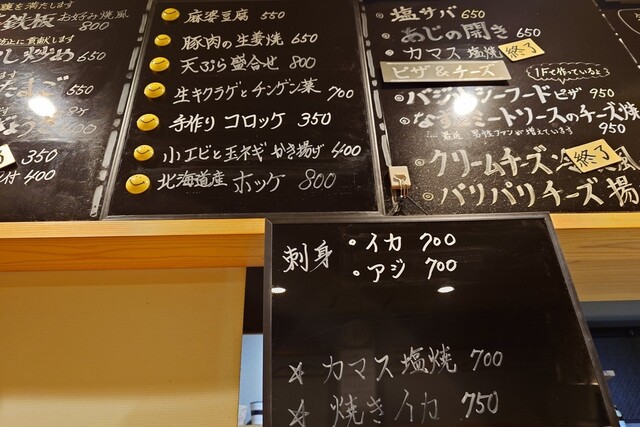 腹を満たします
鉄板 お好み焼風
800
防止に貢献します
650
550
350
付 400
麻婆豆腐 550
豚肉の生姜焼 650
天ぷら盛合せ 800
生キクラゲとチンゲン菜 700
手作りコロッケ 350
小エビと玉ネギかき揚げ 400
北海道産ホッケ 800
塩サバ 650
あじの開き 650
カマス 塩焼 終了
ピザ&チーズ
1Fで作っているよ
シーフードピザ 950
なすとミートソースのチーズ焼
最近 男性ファンが増えています 950
クリームチーズ 終了 風
パリパリチーズ揚
刺身 ・イカ 700
・アジ 700
☆ カマス塩焼 700
☆ 焼きイカ 750